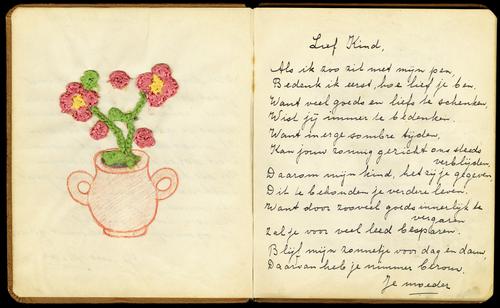 Lief Kind,
Als ik zoo zit met mijn pen,
Bedenk ik eerst, hoe lief je ben,
Want veel goeds en liefs te schenken,
Wist jij immer te bedenken.
Want in erge sombre tijden,
Kan jouw zonnig gezicht ons steeds
verblijden,
Daarom mijn kind, het zij je gegeven
Dit te behouden je verdere leven.
Want door zooveel goeds innerlijk te
vergaren
zal je voor veel leed besparen.
Blijf mijn zonnetje voor dag en dauw,
Daarvan heb je nimmer berouw.
Je moeder